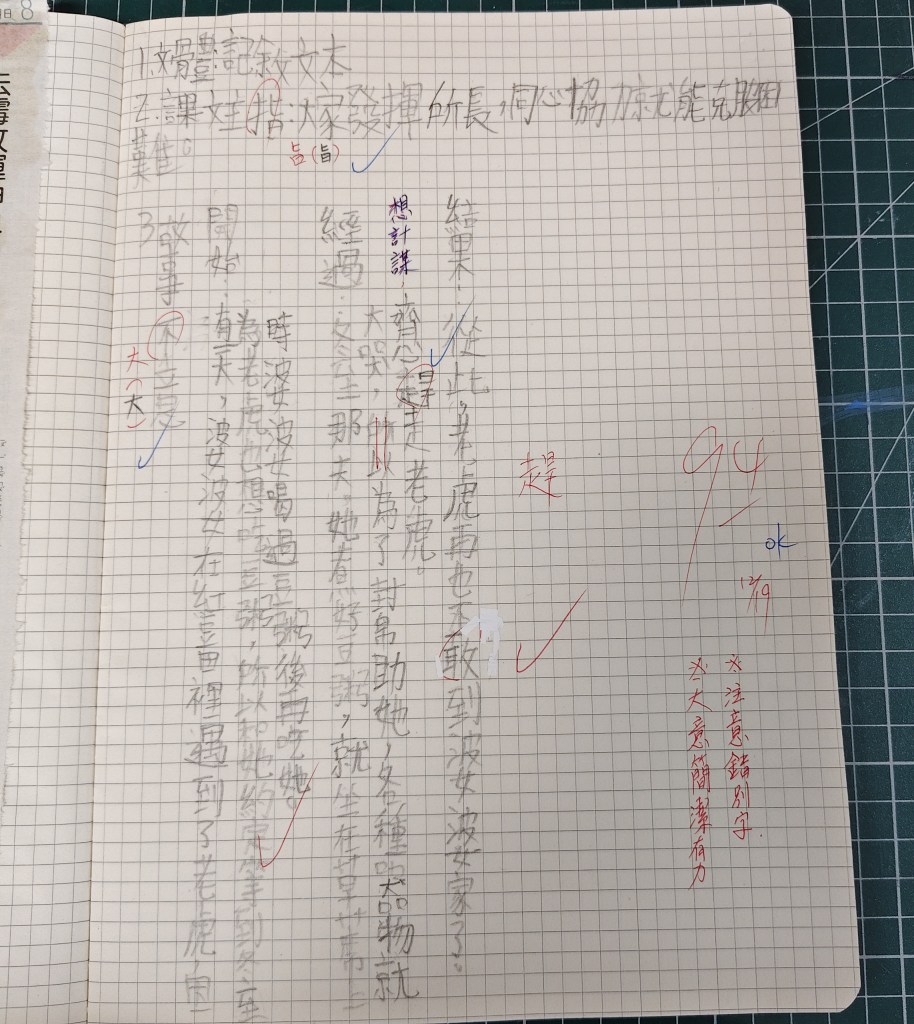 1.文體:記敘文本
2.課文主指:大家發揮所長,同心協力就能克服困
難。
旨(旨)
3.故事大意
大(大)
開始:有一天,波女波女在紅豆田裡遇到了老虎,因
為老虎也想吃豆粥,所以和她約定等到冬至
時波女波女喝過豆粥後再吃她。
經過:冬至那天,她煮好豆粥,就坐在草蓆上
大哭,所以為了討幫助她,各種器物就
想計謀,齊心趕走老虎。
結果:從此,老虎再也不敢到波女波女家了。
趕
94
ok
12/19
※注意錯別字.
※大意簡潔有力